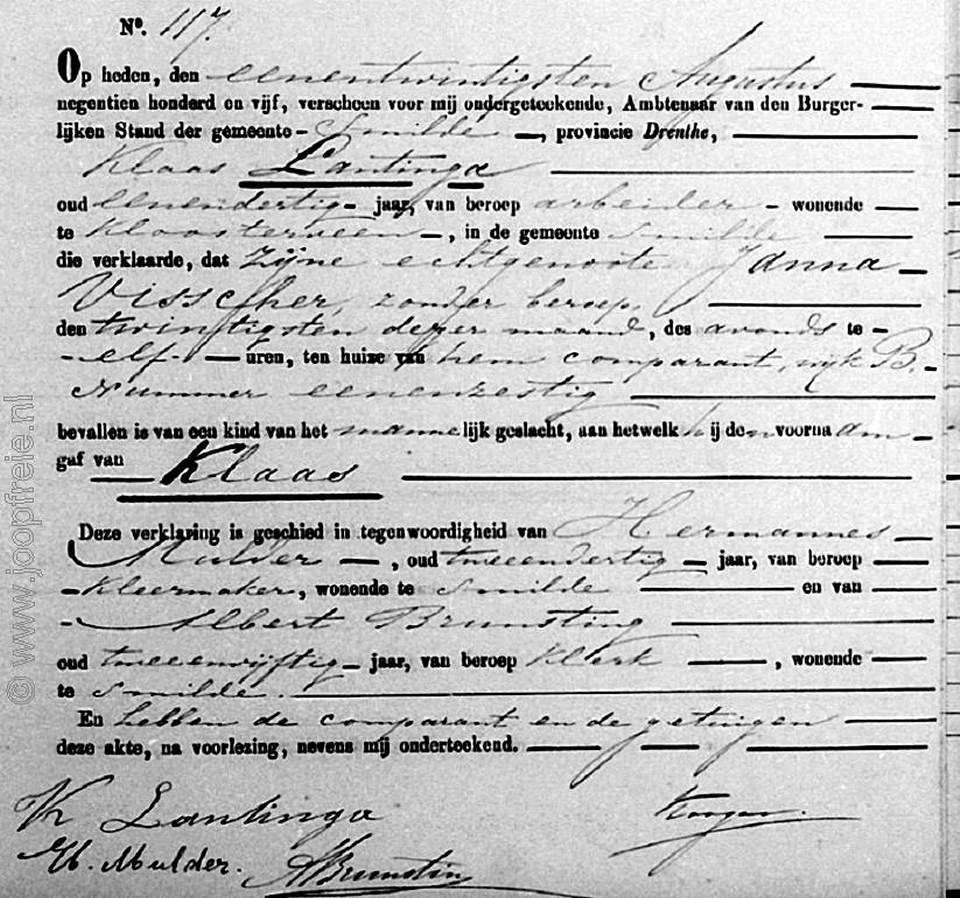 No. 117.
Op heden, den eenentwintigsten Augustus
negentien honderd en vijf, verscheen voor mij ondergeteekende, Ambtenaar van den Burger-
lijken Stand der gemeente Smilde, provincie Drenthe,
Klaas Lantinga
oud eenendertig jaar, van beroep arbeider wonende
te Kloosterveen, in de gemeente Smilde
die verklaarde, dat zijne echtgenoote Janna
Visscher, zonder beroep,
den twintigsten dezer maand, des avonds te
elf uren, ten huize van hem comparant, wijk B.
Nummer eenenzestig
bevallen is van een kind van het mannelijk geslacht, aan hetwelk hij den voornaam
gaf van Klaas
Deze verklaring is geschied in tegenwoordigheid van Hermannes
Mulder, oud tweeendertig jaar, van beroep
Kleermaker, wonende te Smilde en van
Albert Brunsting
oud tweeenvijftig jaar, van beroep Klerk, wonende
te Smilde.
En hebben de comparant en de getuigen
deze akte, na voorlezing, nevens mij onderteekend.
K Lantinga
H. Mulder.
ABrunsting
© www.joopfreie.nl